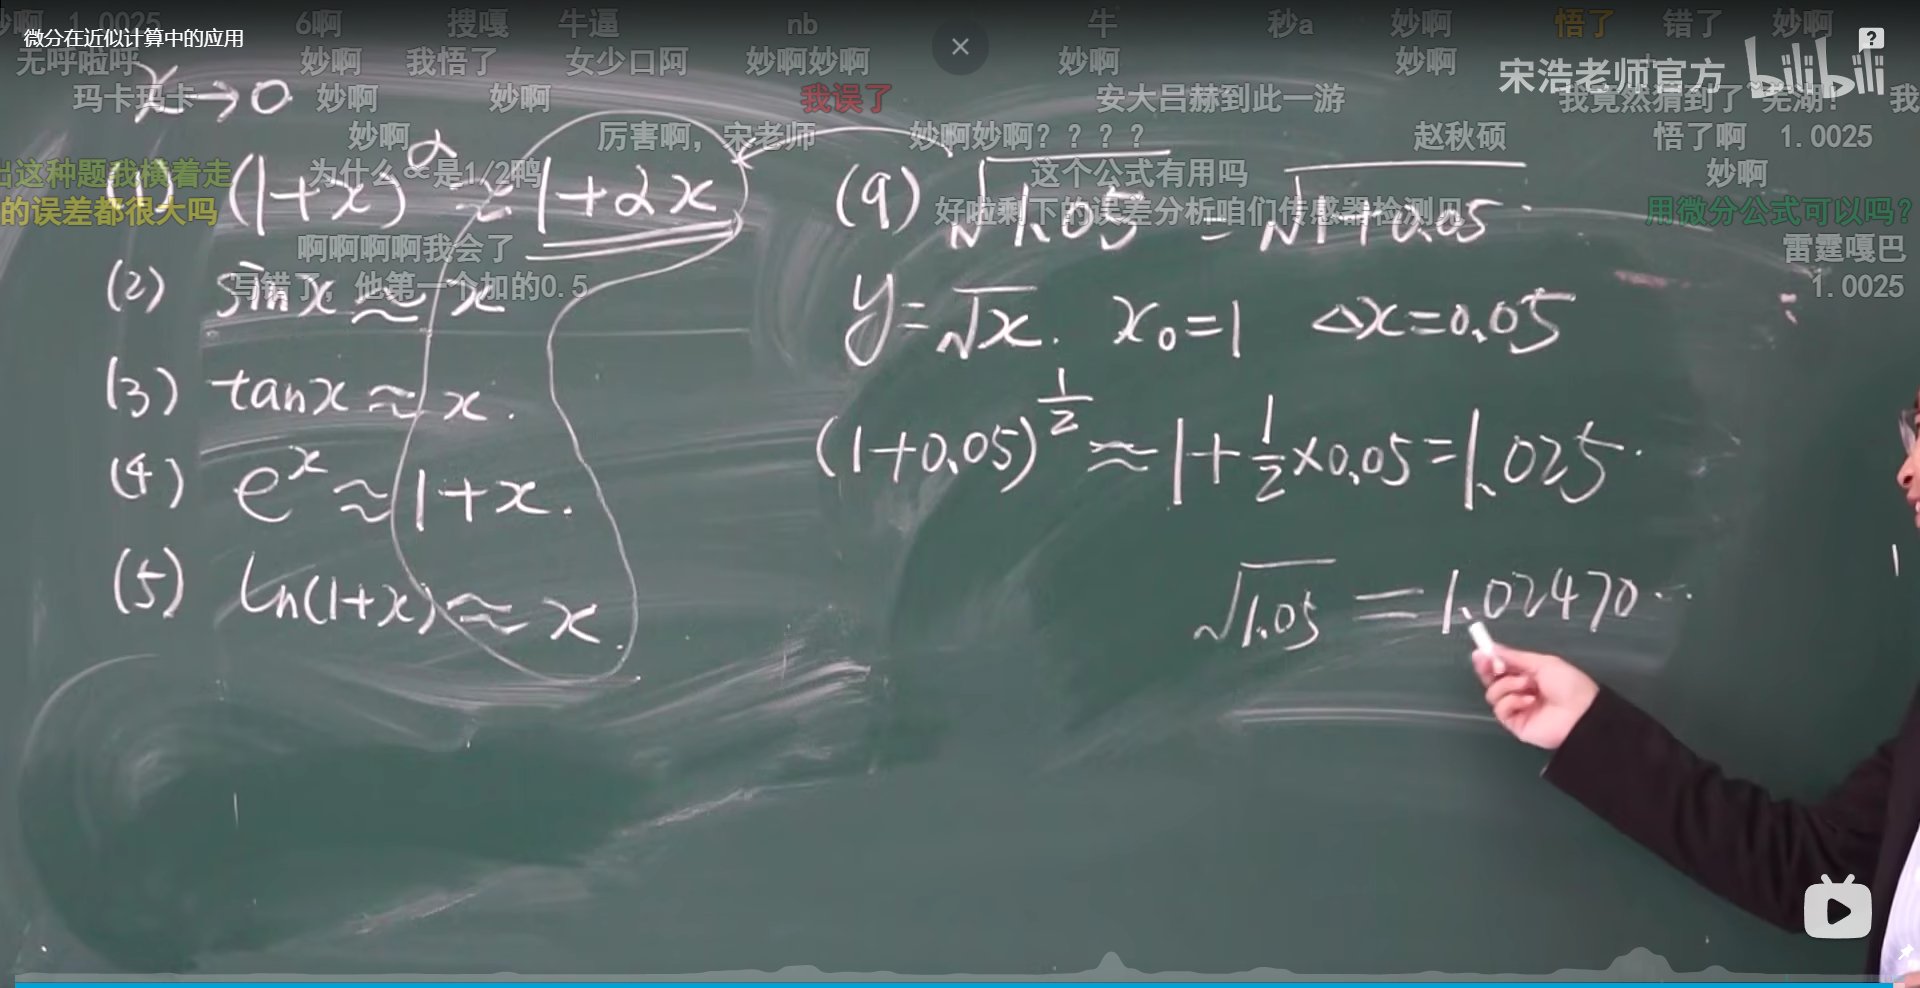 妙啊 1.0025 6啊 搜嘎 牛逼 nb 牛 秒a 妙啊 悟了 错了 妙啊
微分在近似计算中的应用
无呼啦呼 妙啊 我悟了 女少口阿 妙啊妙啊 妙啊 妙啊
宋浩老师官方 bilibili
玛卡玛卡 妙啊 妙啊 我误了 安大吕赫到此一游 我竟然猜到了 芜湖! 我
x→0
妙啊 厉害啊，宋老师 妙啊妙啊？？？？ 赵秋硕 悟了啊 1.0025
出这种题我横着走 为什么 是1/2鸭 这个公式有用吗 妙啊
的误差都很大吗 好啦剩下的误差分析咱们传感器检测见 用微分公式可以吗？
(1) (1+x)^α ≈ 1+αx
(9) √1.05 = √1+0.05.
啊啊啊啊我会了 雷霆嘎巴
写错了，他第一个加的0.5 1.0025
(2) sinx ≈ x
y=√x. x₀=1 △x=0.05
(3) tanx ≈ x.
(1+0.05)^1/2 ≈ 1+1/2×0.05=1.025.
(4) e^x ≈ 1+x.
(5) ln(1+x) ≈ x.
√1.05 = 1.02470…